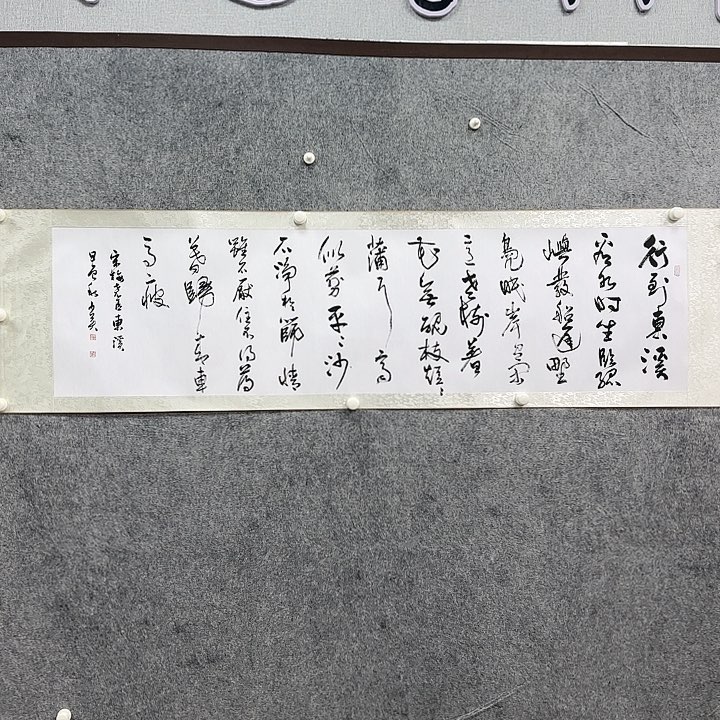 行到東溪
看水時坐臨孤
嶼發船遲野
鳧眠岸有閑
意老樹著
花無醜枝短〻
蒲茸齊
似剪平〻沙
石淨於篩情
雖不厭住不得薄
暮歸來車
馬疲
宋梅堯臣東溪
秋